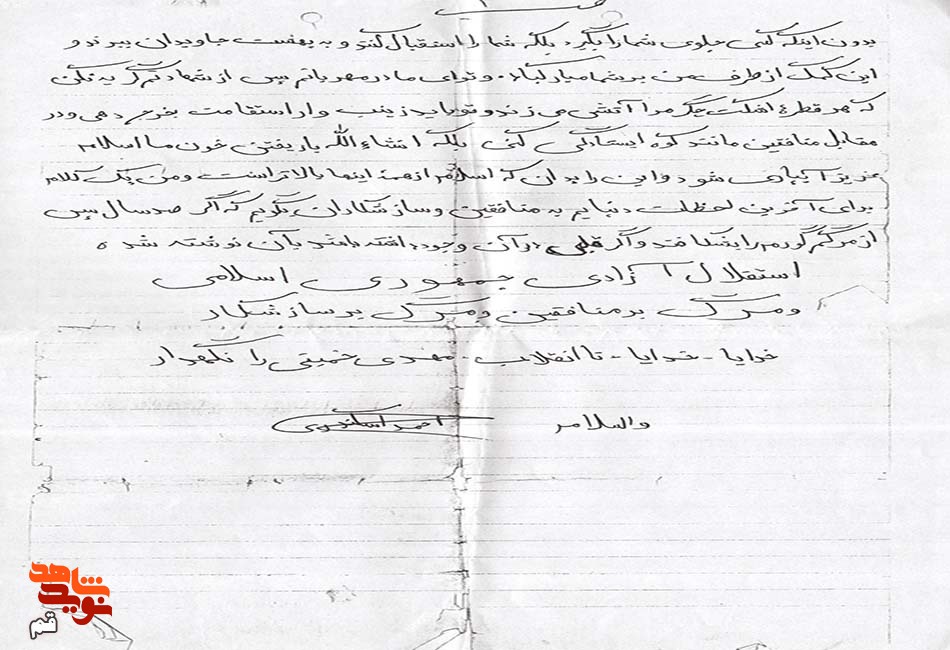 بدون اینکه کسی جلوی شما را بگیرد بلکه شما را استقبال کند و به بهشت جاویدان ببرند و
این کمک از طرف من بر شما مبارک باد. و توای مادر مهربانم پس از شهادتم گریه نکن
که هر قطره اشکت جگر مرا آتش می زند و تو باید زینب وار استقامت بخرج دهی و در
مقابل منافقین مانند کوه ایستادگی کنی بلکه انشاءالله با ریختن خون ما اسلام
عزیز آبیاری شود و این را بدان که اسلام از همه اینها بالاتر است و من یک کلام
برای آخرین لحظات دنیایم به منافقین و سازشکاران بگویم که اگر صد سال پس
از مرگم گورم را بشکافند و اگر قلبی در آن وجود داشته باشد با آن نوشته شده
استقلال آزادی جمهوری اسلامی
و مرگ بر منافقین و مرگ بر سازشکار
خدایا - خدایا - تا انقلاب مهدی خمینی را نگهدار
والسلام احمد
نوید شاهد
قم